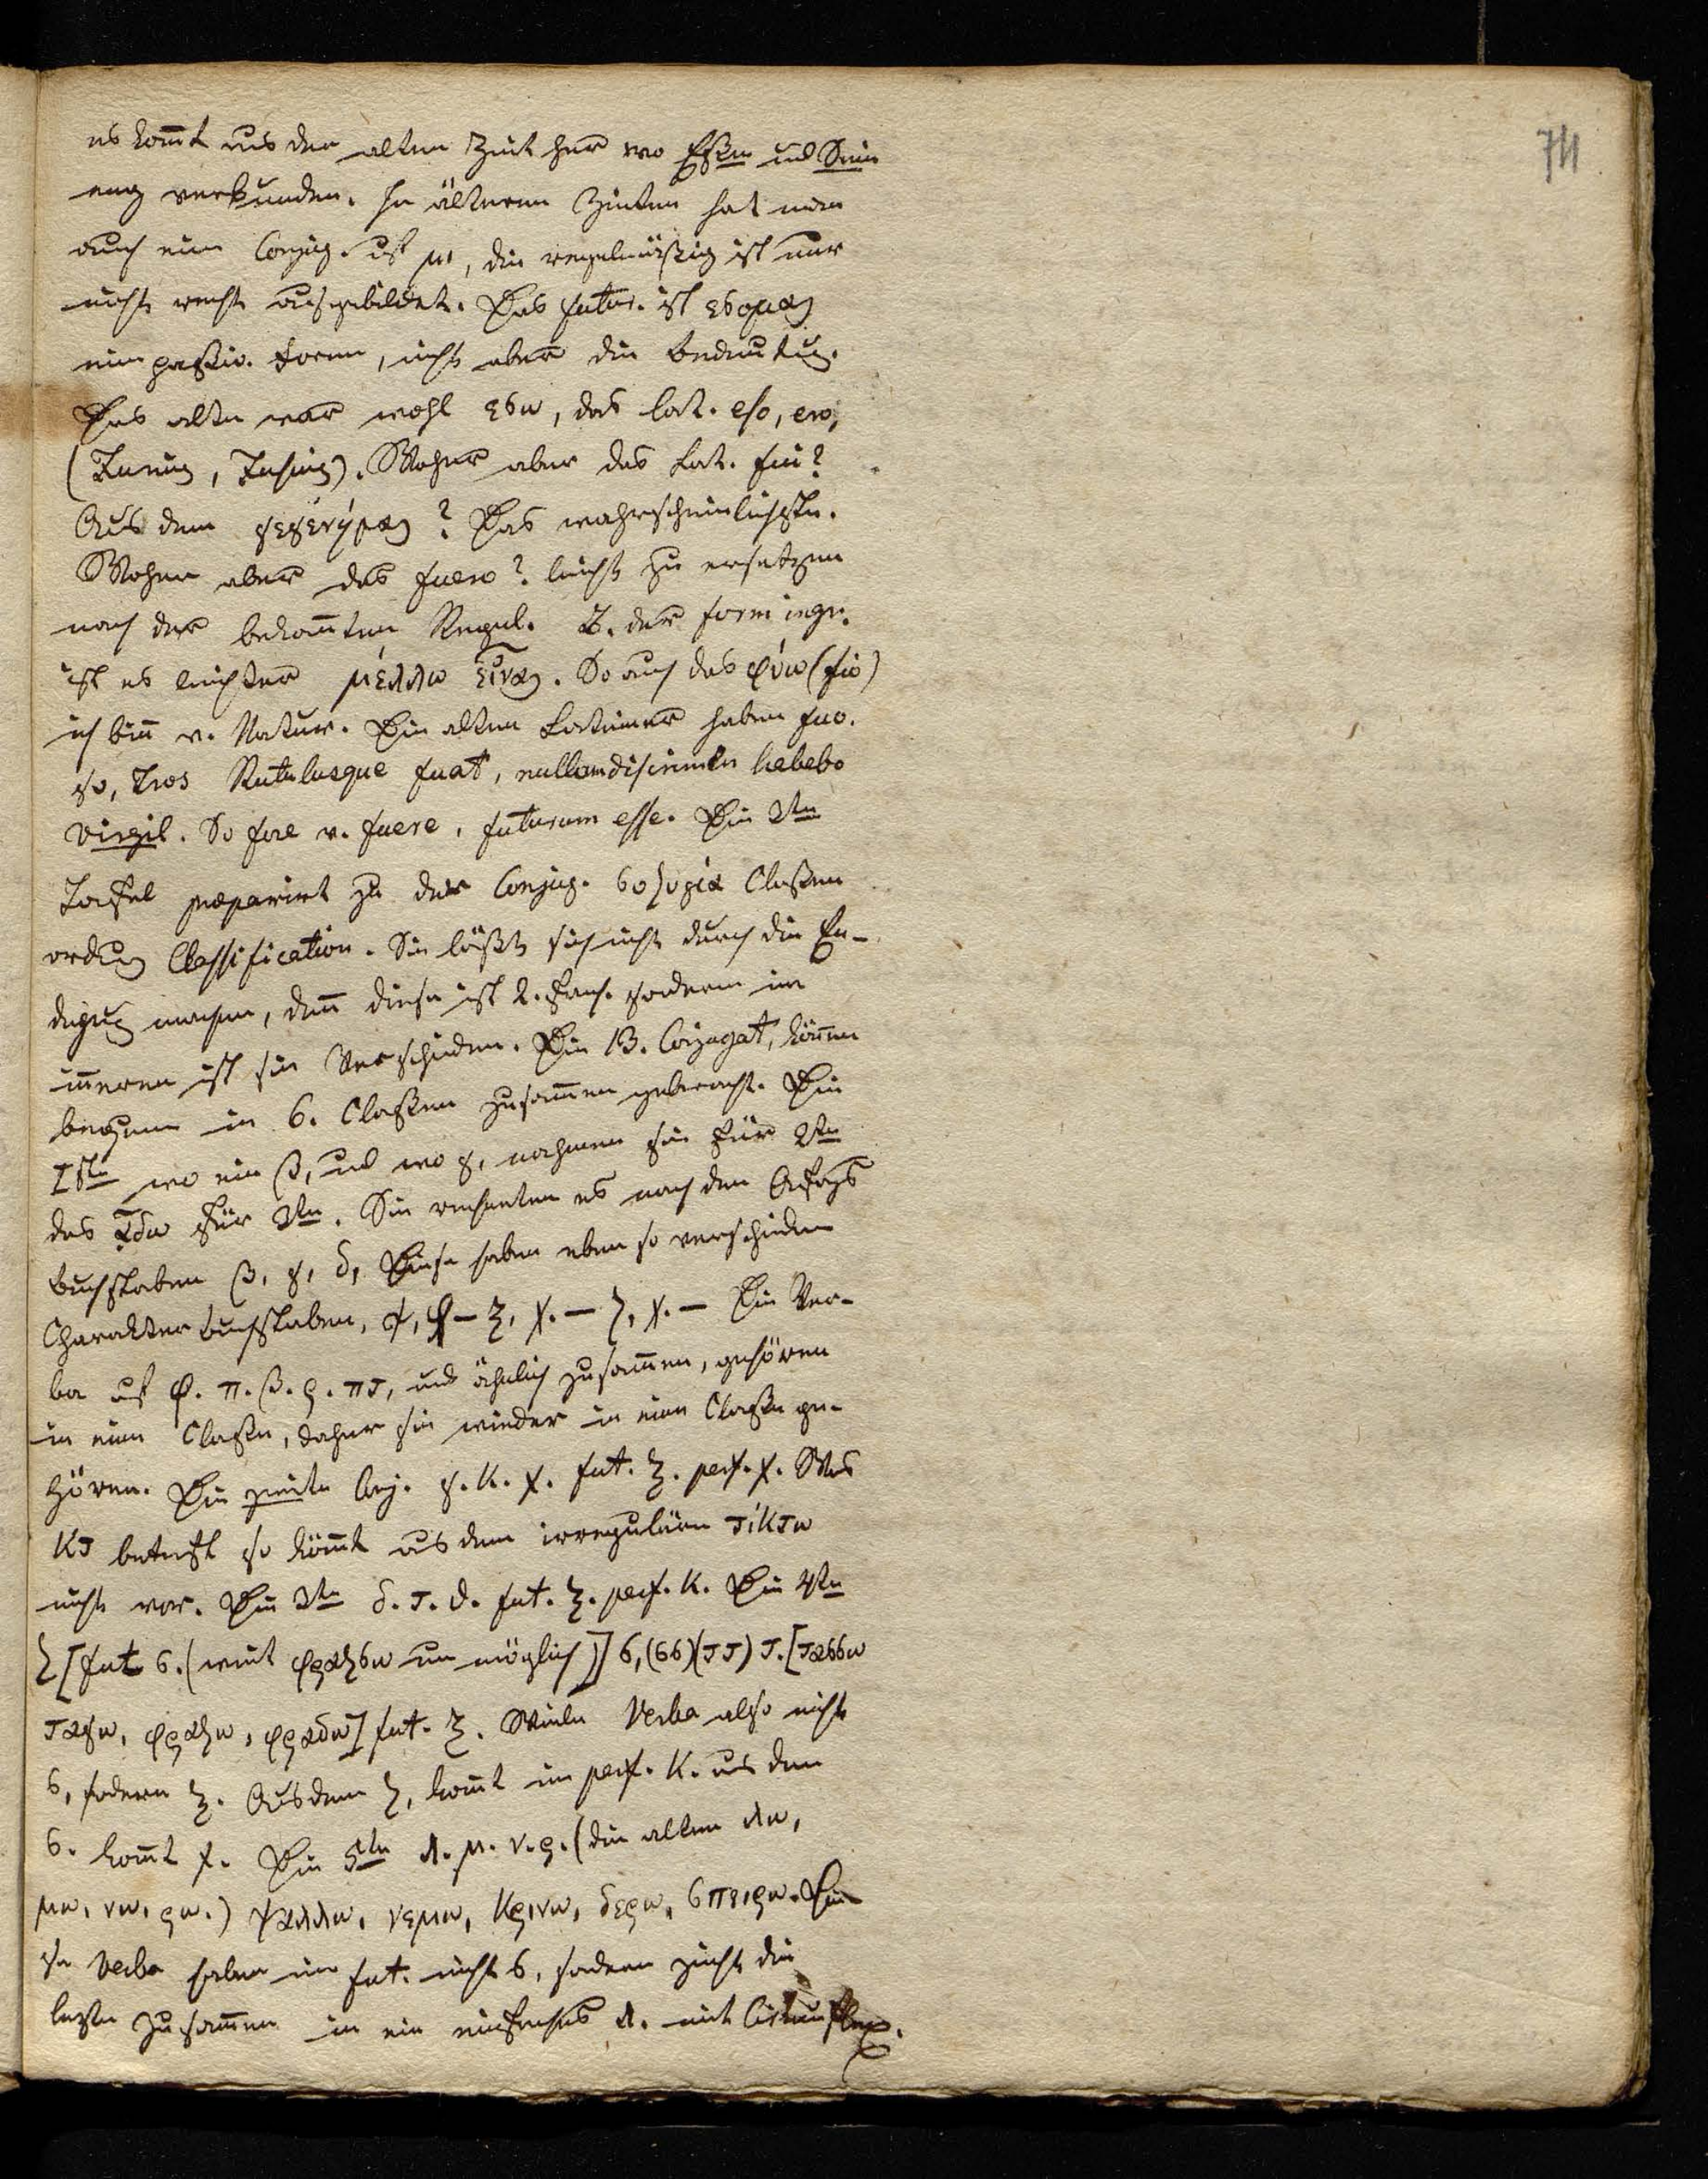 74
es kom̅t aus der alten Zeit her wo Eßen und Sein
eng verbunden. In älteren Zeiten hat man
auch eine Conjug. auf μι, die regelmäßig ist nur
nicht recht ausgebildet. Das futur. ist εσομαι
eine passiv. Form, nicht aber die Bedeutung.
Das alte war wohl εσω, das lat. eso, ero,
(Furius, Fusius). Woher aber das Lat. fui?
Aus dem γεγένημαι? Das wahrscheinlichste.
Woher aber das fuero? leicht zu ersetzen
nach der bekan̅ten Regul. B. der form
ist es leichter μέλλω εἶναι. So auch das φύω (fio)
ich bin̅ v. Natur. Die alten Lateiner haben fuo.
so, Tros Rutulusque fuat, nullum discrimen habebo
Virgil. So fore v. fuere, futurum esse. Die 2te
Tafel præparirt zu der Conjug. συζυγία Claßen
ordnung Classification. Sie läßt sich nicht durch die En-
digung machen, den̅ diese ist 2. fach. sondern im
in̅eren ist sie Verschieden. Die 13. Conjugat, kön̅en
bequem in 6. Claßen zusam̅en gebracht. Die
1ste wo ein β, und wo γ, nahmen sie für 2te
das δω für 3te. Sie rechneten es nach den Anfangs
buchstaben β, γ, δ, Diese haben eben so verschiedene
Charakter buchstaben, ψ, φ – ξ, χ. – ζ, χ. – Die Ver-
ba auf φ. π. β. ϱ. πτ, und ähnlich zusam̅en, gehören
in eine Claße, daher sie wieder in eine Claße ge-
hören. Die zweite Conj. γ. κ. χ. fut. ξ. perf. χ. Was
κτ betrift so kom̅t aus dem irregulären τίκτω
nichts vor. Die 3te δ. τ. θ. fut. ξ. perf. κ. Die 4te
ζ [fut σ. (weil φραζσω un möglich)] σ, (σσ) (ττ) τ. [τασσω
ταγω, φραζω, φραδω] fut. ξ. Viele Verba also nicht
σ, sondern ξ. Aus dem ζ, kom̅t im perf. κ. aus dem
σ. kom̅t χ. Die 5te λ. μ. ν. ϱ. (die alten λω,
μω, νω, ϱω.) ψαλλω, νεμω, κϱινω, δεϱω, σπειϱω. Die
se Verba haben im fut. nicht σ, sondern zieht die
lezte zusam̅en in ein einfaches λ. mit Circumflex.